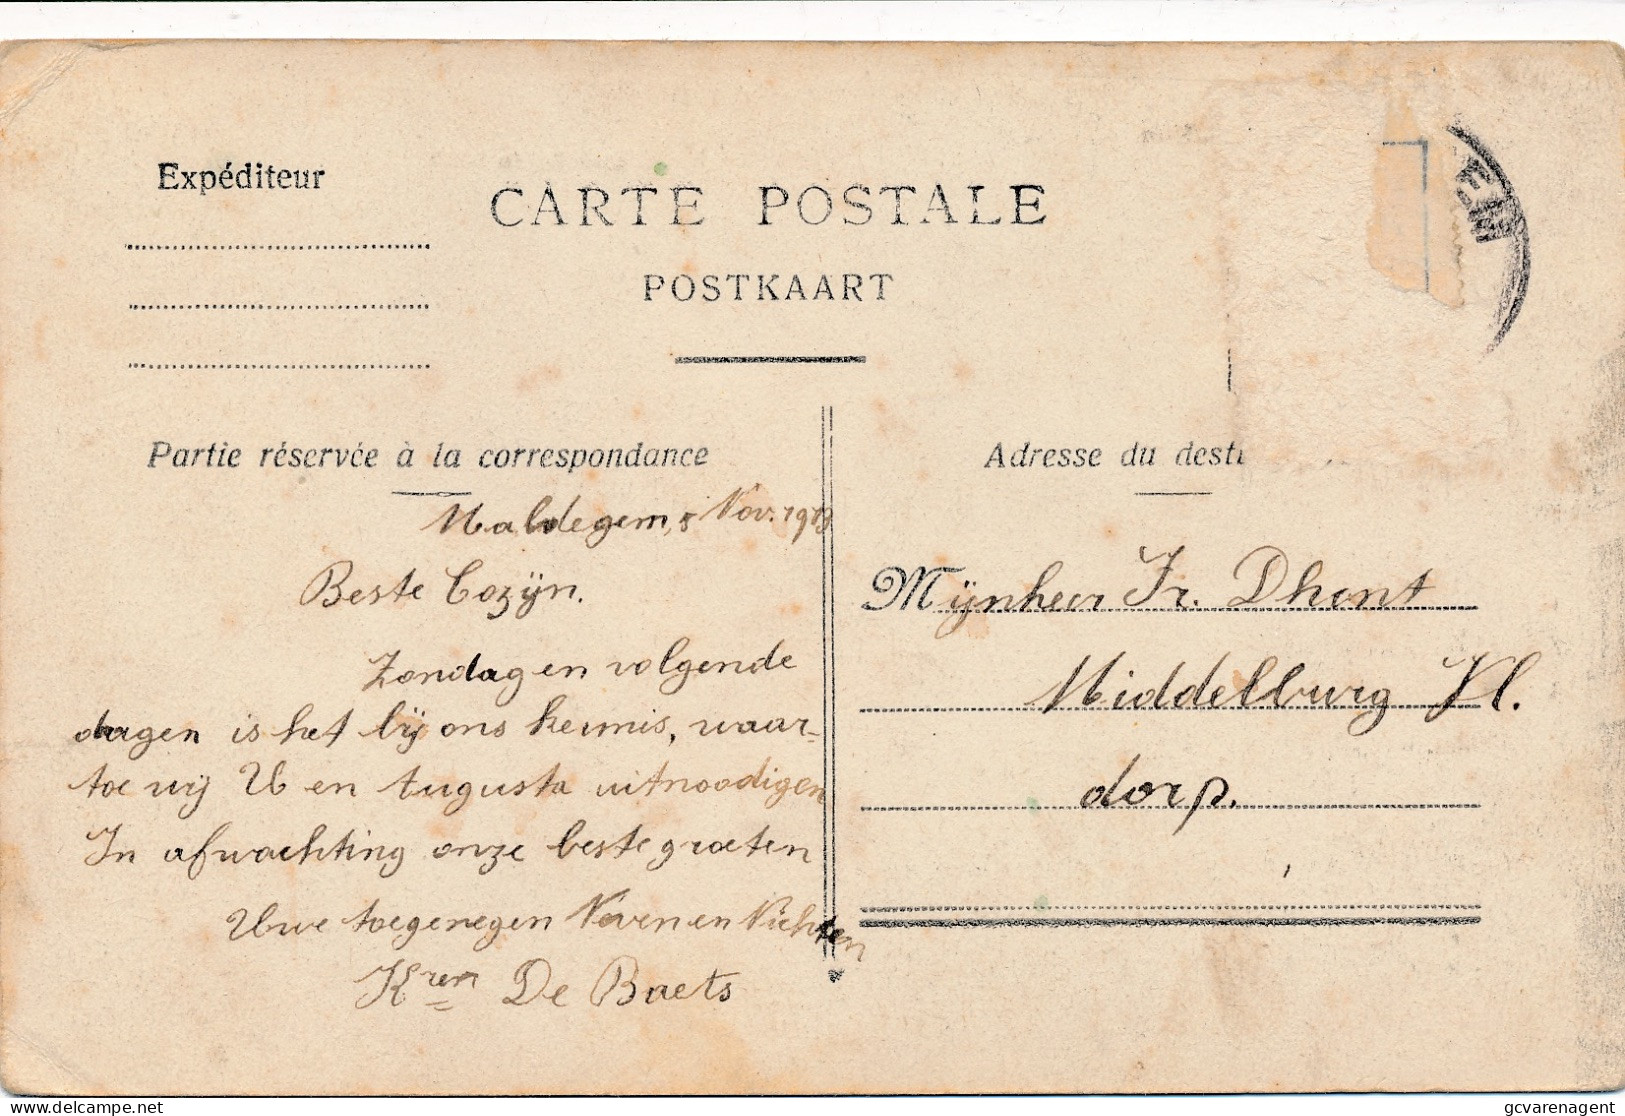 Expéditeur
CARTE POSTALE
POSTKAART
EM
Partie réservée à la correspondance
Adresse du desti
Maldegem, 5 Nov. 1913
Beste Cozijn.
Zondag en volgende
dagen is het bij ons kermis, waar-
toe wij U en Augusta uitnoodigen
In afwachting onze beste groeten
Uwe toegenegen Neven en Nichten
Kren De Baets
Mijnheer Fr. Dhont
Middelburg Vl.
dorp.
delcampe.net
gcvarenagent